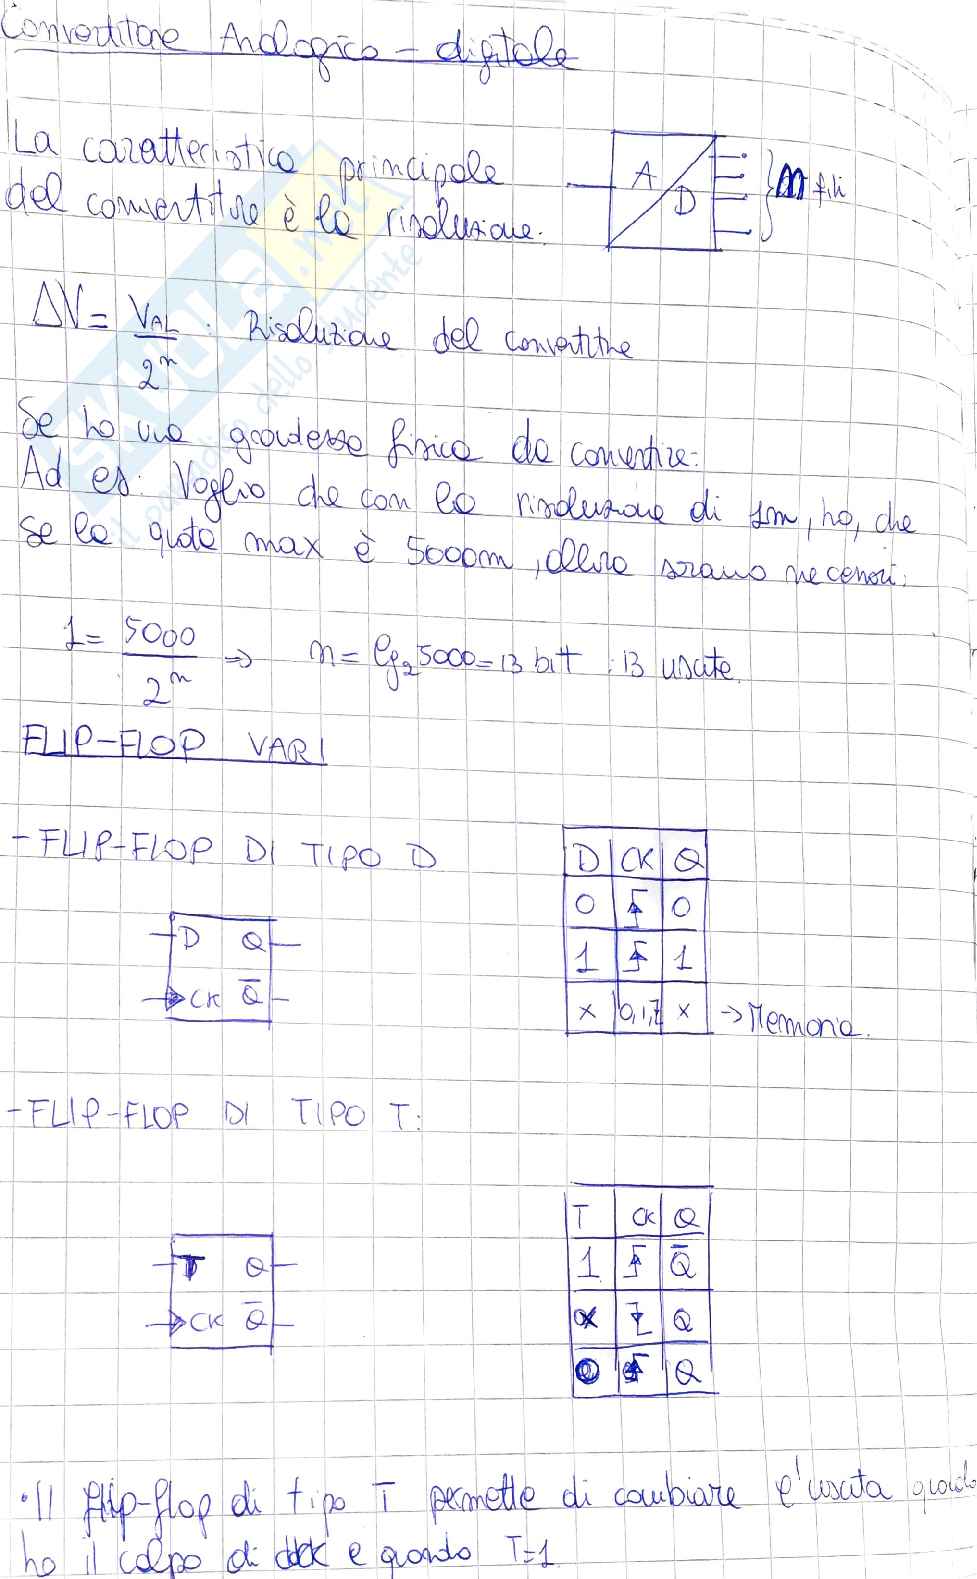 Convertitore Analogico - digitale
La caratteristica principale
del convertitore è la risoluzione.
A
D
n fili
ΔV = VAL / 2^n : Risoluzione del convertitore
Se ho una grandezza fisica da convertire:
Ad es: Voglio che con la risoluzione di 1m, ho, che
se la quota max è 5000m, allora saranno necessari:
1 = 5000 / 2^n ⇒ n = lg₂5000 = 13 bit : 13 uscite.
FLIP-FLOP VARI
- FLIP-FLOP DI TIPO D
D CK Q
0 ↑ 0
1 ↑ 1
x 0,1,↓ x → Memoria.
D Q
CK Q̅
- FLIP-FLOP DI TIPO T:
T CK Q
1 ↑ Q̅
x ↓ Q
0 ↑ Q
T Q
CK Q̅
• Il flip-flop di tipo T permette di cambiare l'uscita quando
ho il colpo di clock e quando T=1.
SKUOLA.net
il paradiso dello studente